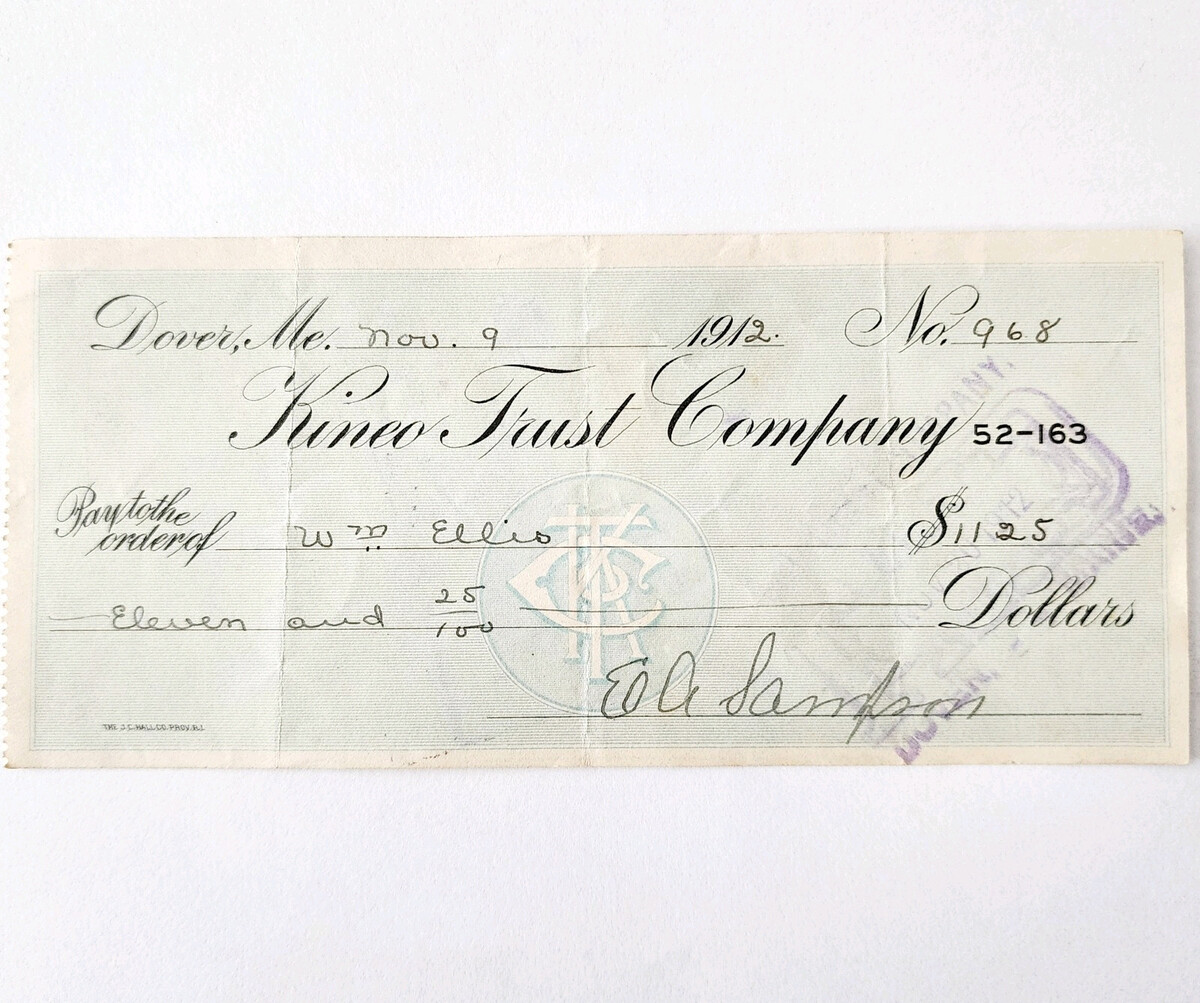 Dover, Me. Nov. 9 1912. No. 968
Kineo Trust Company 52-163
Pay to the
order of Wm Ellis $11 25
Eleven and 25/100 Dollars
E A Sampson
THE J.C. HALL CO. PROV. R.I.